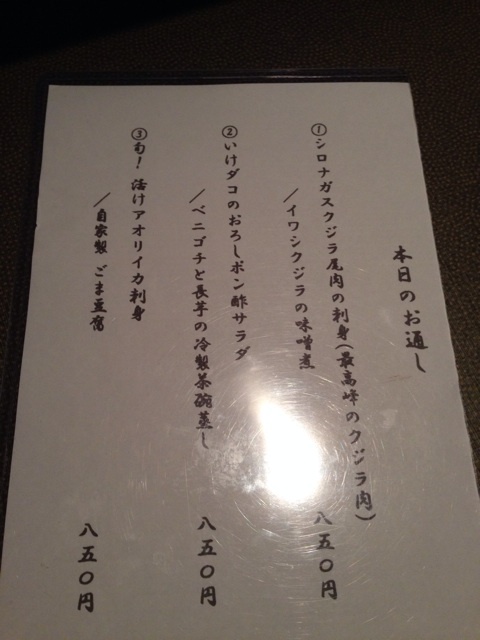 本日のお通し
①シロナガスクジラ尾肉の刺身(最高峰のクジラ肉)
／イワシクジラの味噌煮
八五〇円
②いけダコのおろしポン酢サラダ
／ベニゴチと長芋の冷製茶碗蒸し
八五〇円
③旬！ 活けアオリイカ刺身
／自家製 ごま豆腐
八五〇円